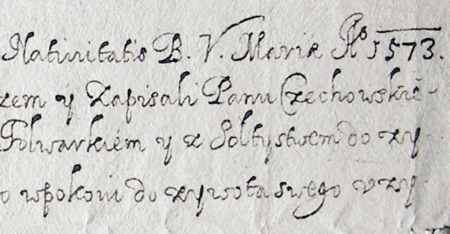 Natiuitatis B. V. Mariæ Aº 1573.
zem y Zapisali Panu Czechowskié
Folwarkiém y z Soltystwem do zy
o wpokoiu do zywota swego vzy